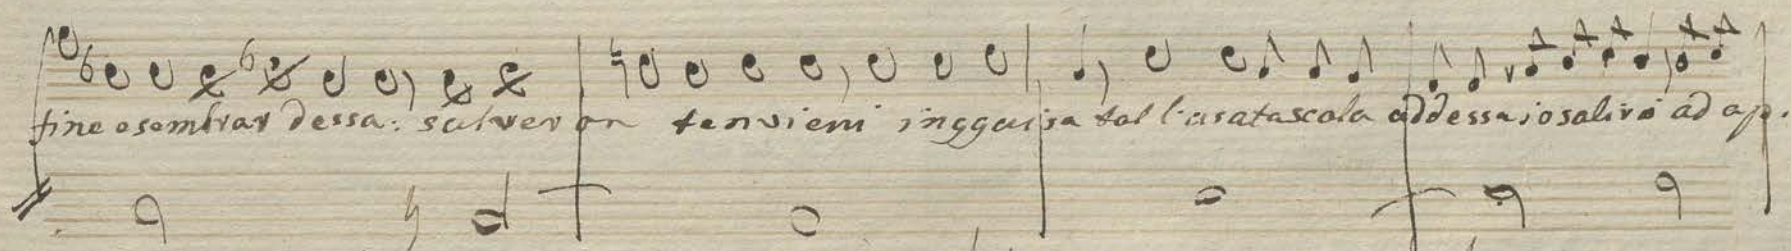 fine o sembrar dessa: sulveron tenvieni inggui sa tal l'usata scala ad dessa io saliró ad ap.